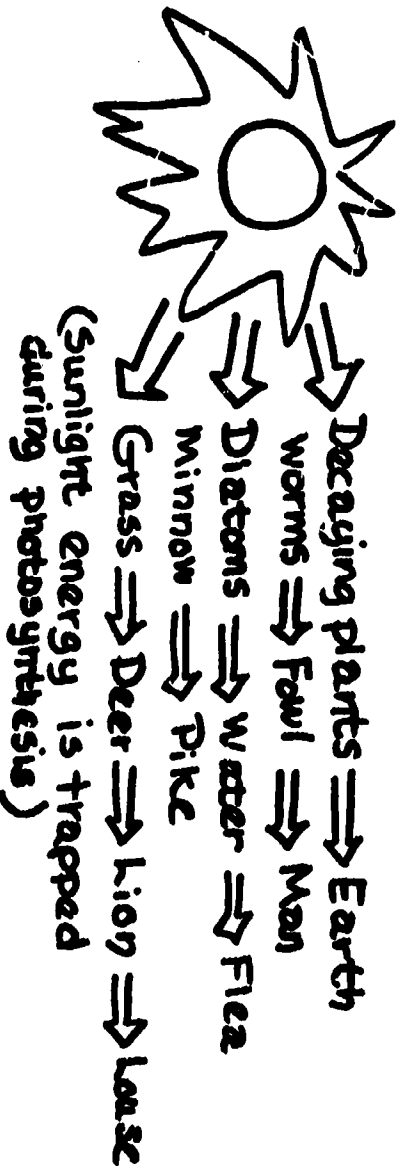 Decaying plants ⇒ Earth
worms ⇒ Fowl ⇒ Man
Diatoms ⇒ Water ⇒ Flea
Minnow ⇒ Pike
Grass ⇒ Deer ⇒ Lion ⇒ Louse
(Sunlight energy is trapped
during photosynthesis)